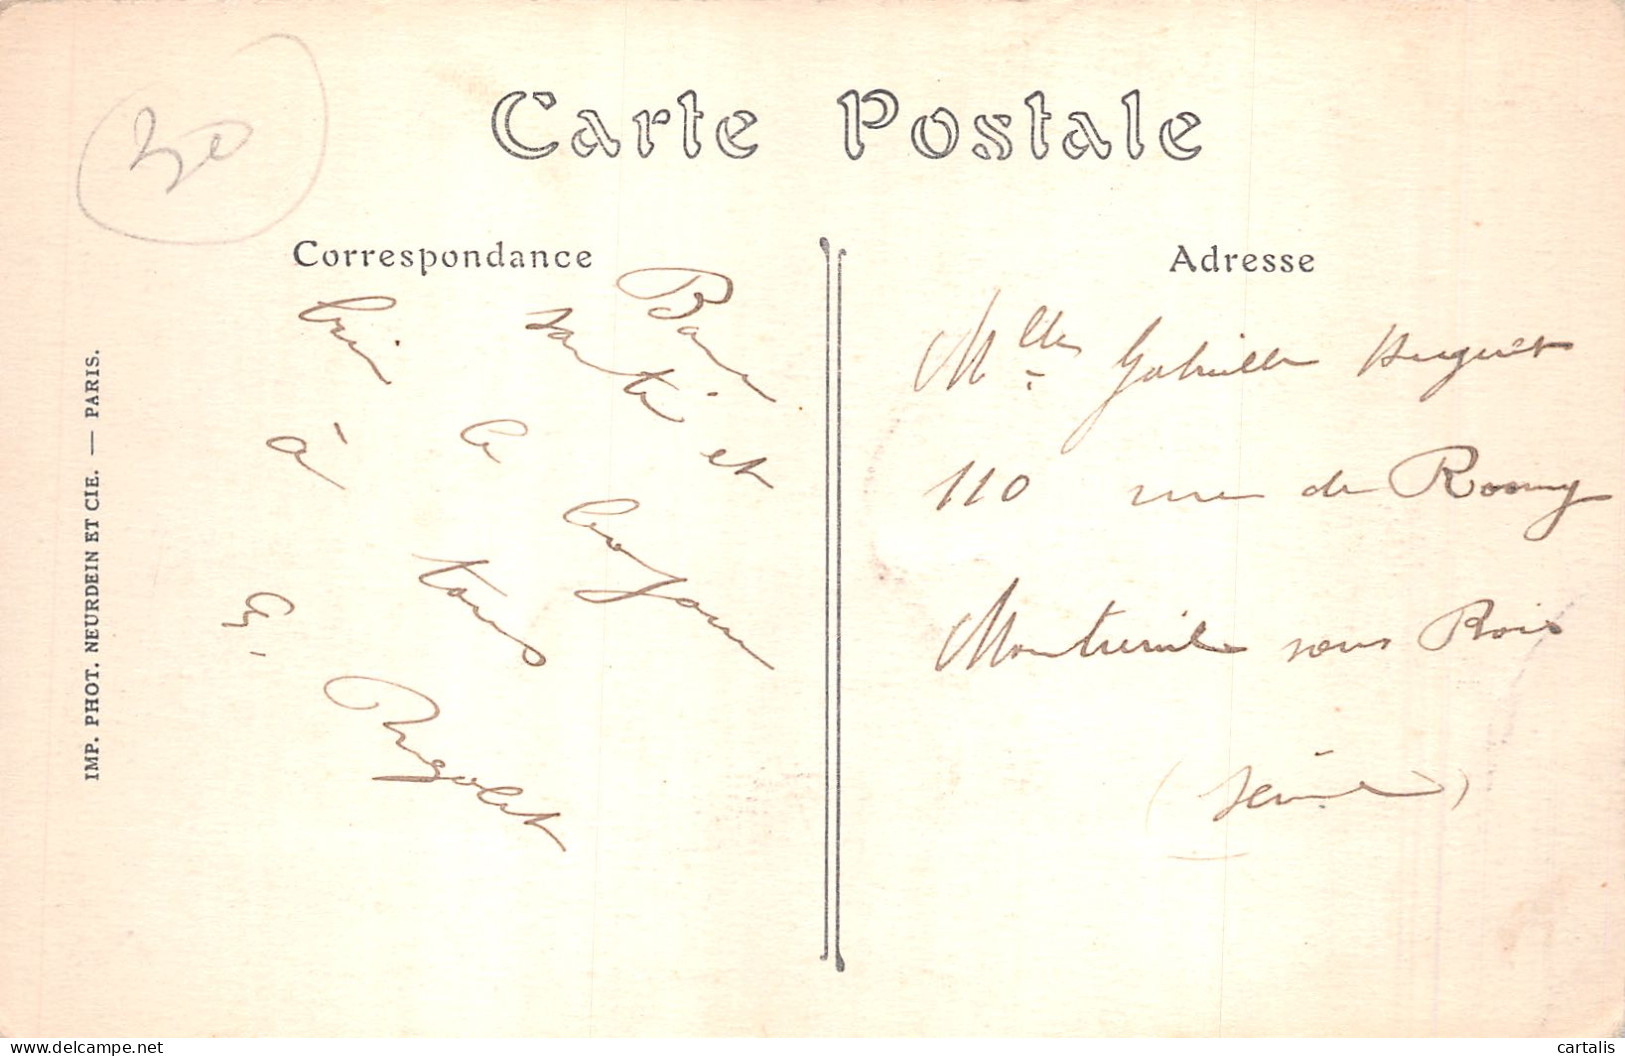 30
Carte Postale
Correspondance
Adresse
Bonne
santé et
bien le bonjour
à tous
G. Rigolet
Mlle Gabrielle Huguet
110 rue de Rosny
Montreuil sous Bois
(Seine)
IMP. PHOT. NEURDEIN ET CIE. — PARIS.
delcampe.net
cartalis